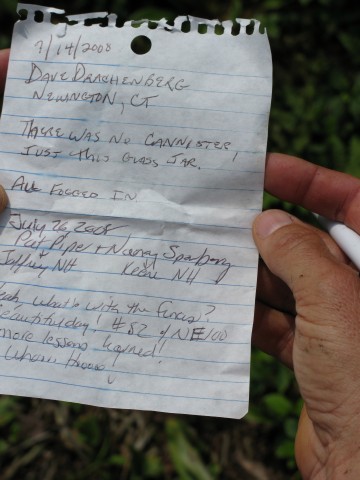 7/14/2008
Dave Drachenberg
Newington, CT
There was no cannister,
Just this glass jar.
All Egged in.
July 26 2008
Pat Piper + Nancy Sporborg
Jaffrey NH Keene NH
Yeah what's with the fence?
Beautiful day! #82 of NE100
more lessons learned!
Whoo hooo!